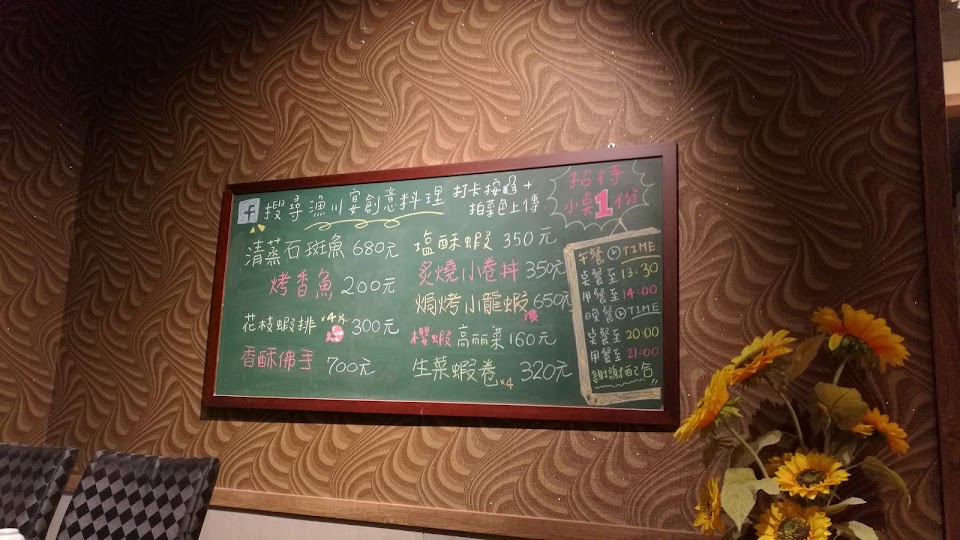 f 搜尋漁川宴創意料理 打卡按讚+
拍菜色上傳
招待
小菜1份
清蒸石斑魚 680元
烤香魚 200元
花枝蝦排 ×4片 300元
香酥佛手 700元
塩酥蝦 350元
炙燒小卷丼 350元
焗烤小龍蝦 650元
櫻蝦高丽菜 160元
生菜蝦卷×4 320元
午餐 TIME
点餐至 13:30
用餐至 14:00
晚餐 TIME
点餐至 20:00
用餐至 21:00
謝謝配合!!